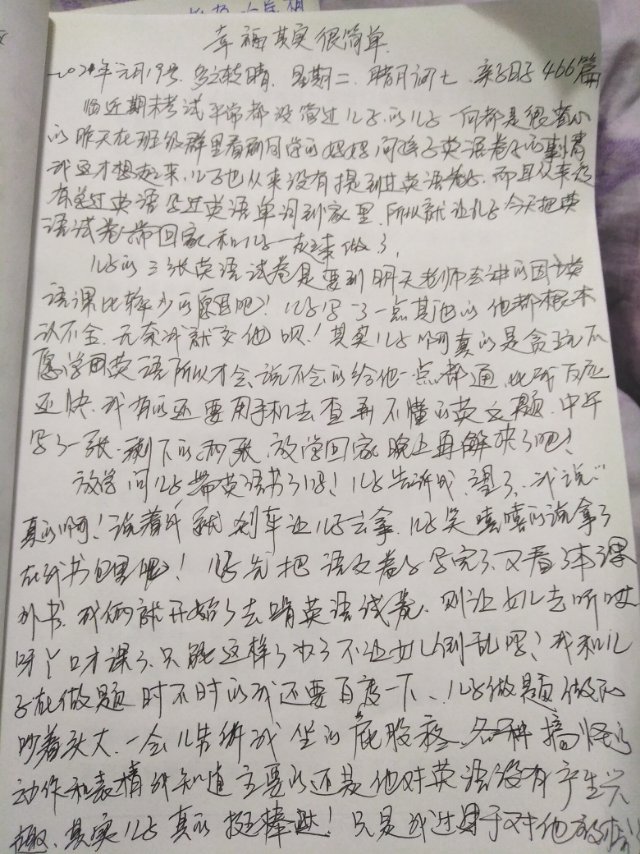 幸福其实很简单
2021年元月19号 多云转晴 星期二 腊月初七 亲子日子466篇
临近期末考试平常都没管过儿子的儿子一向都是很贪玩
的昨天在班级群里看到同学的妈妈问孩子英语卷子的事情
我这才想起来,儿子也从来没有提到过英语卷子,而且从来没
有背过英语写过英语单词到家里,所以就让儿子今天把英
语试卷带回家,和儿子一起来做了,
儿子的三张英语试卷是要到明天老师会讲的因为英
语课比较少的原因吧!儿子写了一点其他的他都根本
认不全,无奈我就教他呗!其实儿子啊真的是贪玩不
愿学用英语所以才会说不会的给他一点都通,比我反应
还快,我有的还要用手机去查看不懂的英文题,中午
写了一张,剩下的两张,放学回家晚上再解决了吧!
放学问儿子带英语书了吗?儿子告诉我,忘了,我说:
真的啊!说着我就刹车让儿子去拿,儿子笑嘻嘻的说拿了
在我书包里呢!儿子先把语文卷子写完了又看了本课
外书,我俩就开始了去啃英语试卷,则让女儿去听哎
呀丫口才课了,只能这样了办了不让女儿倒乱呢?我和儿
子在做题时不时的我还要百度一下、儿子做题做的
吵着头大,一会儿告诉我坐的屁股疼,各种搞怪的
动作和表情我知道主要的还是他对英语没有产生兴
趣、其实儿子真的挺棒哒!只是我过于对他